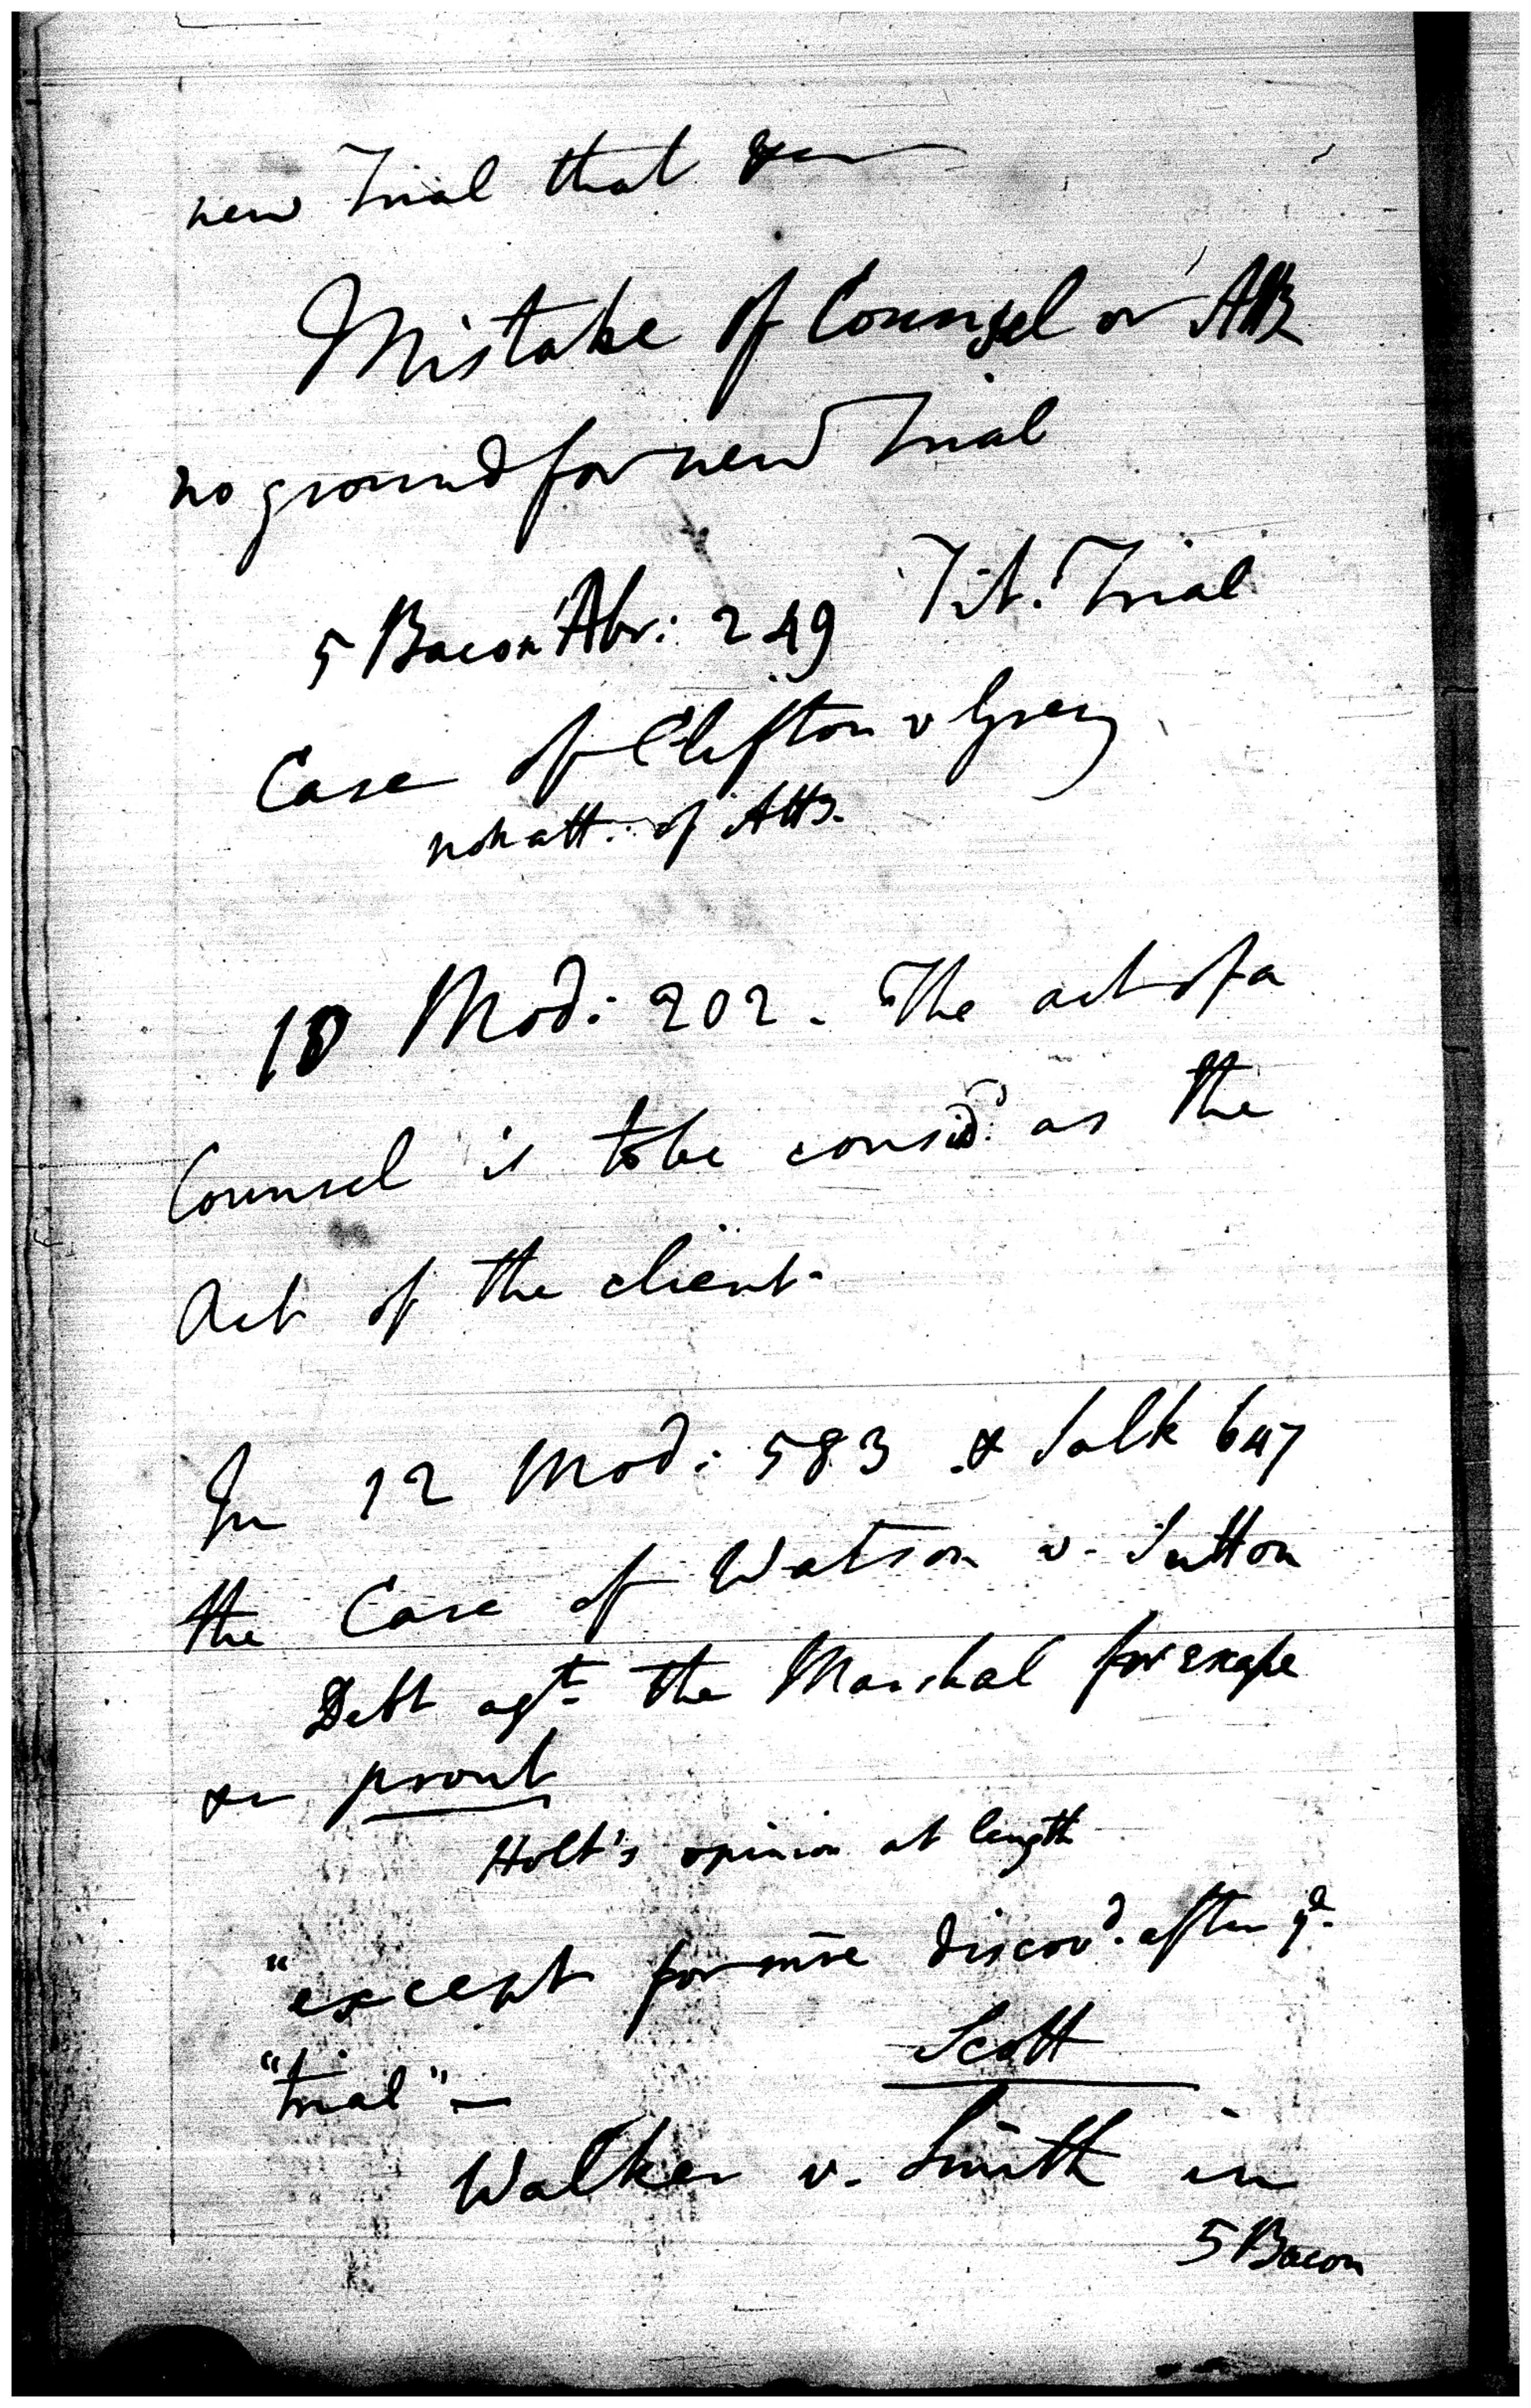 new Trial that &c
Mistake of Counsel or Atty
no ground for new Trial
5 Bacon Abr: 249 Tit. Trial
Case of Clifton v Grey
nonatt. of Atty.
10 Mod: 202. "The act of a
Counsel is to be consid.d as the
Act of the client.
In 12 Mod: 583 & Salk 647
the Case of Watson v. Sutton
Debt agt. the Marshal for escape
&c prout
Holt's opinion at length
"except for mre discovd. after ye.
"trial" —
Scott
Walker v. Smith in
5 Bacon